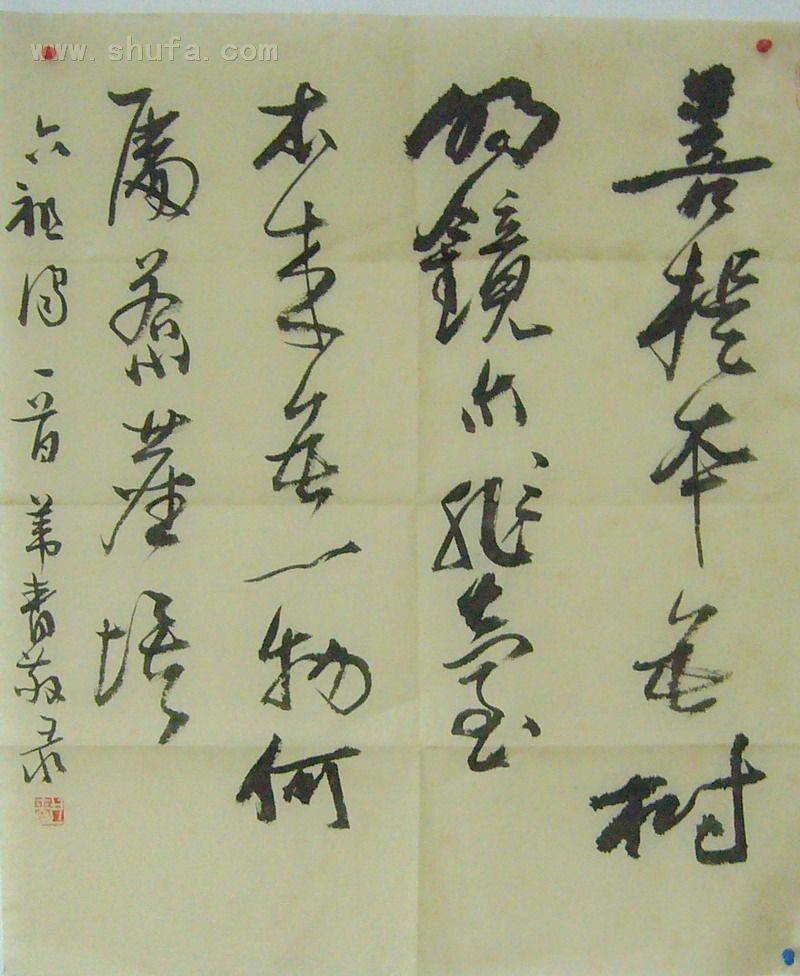 www.shufa.com
菩提本無樹
明鏡亦非臺
本來無一物何
處惹塵埃
六祖偈一首 青敬录